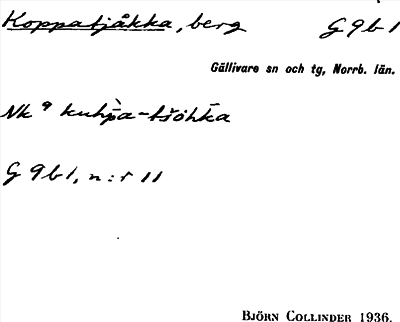 Koppatjåkka, berg G 9 b 1
Gällivare sn och tg, Norrb. län.
Nk
G 9 b 1, n:r 11
BJÖRN COLLINDER 1936.